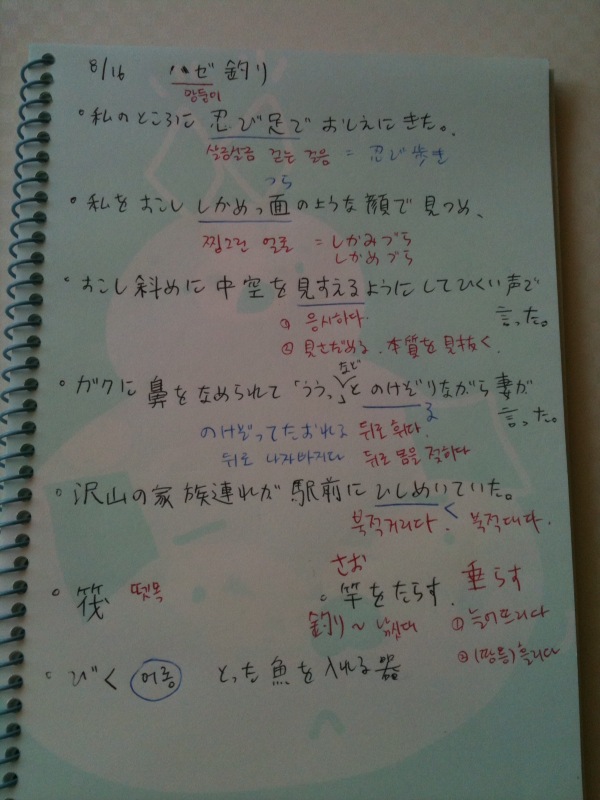 8/16 ハゼ釣り
망둥이
○ 私のところに忍び足でおしえにきた。
살금살금 걷는 걸음 = 忍び歩き
つら
○ 私をおこししかめっ面のような顔で見つめ、
찡그린 얼굴 = しかみづら
しかめづら
○ おこし斜めに中空を見すえるようにしてひくい声で
① 응시하다. 言った。
② 見さだめる. 本質を見抜く.
など
○ ガクに鼻をなめられて「うぅっ」とのけぞりながら妻が
る 言った。
のけぞってたおれる 뒤로 휘다.
뒤로 나자빠지다 뒤로 몸을 젖히다
○ 沢山の家族連れが駅前にひしめいていた。
북적거리다. く 북적대다.
さお
○ 筏 뗏목 ○ 竿をたらす. 垂らす
釣り〜 낚싯대 ① 늘어뜨리다
② (땀등)흘리다
○ びく 어롱 とった魚を入れる器